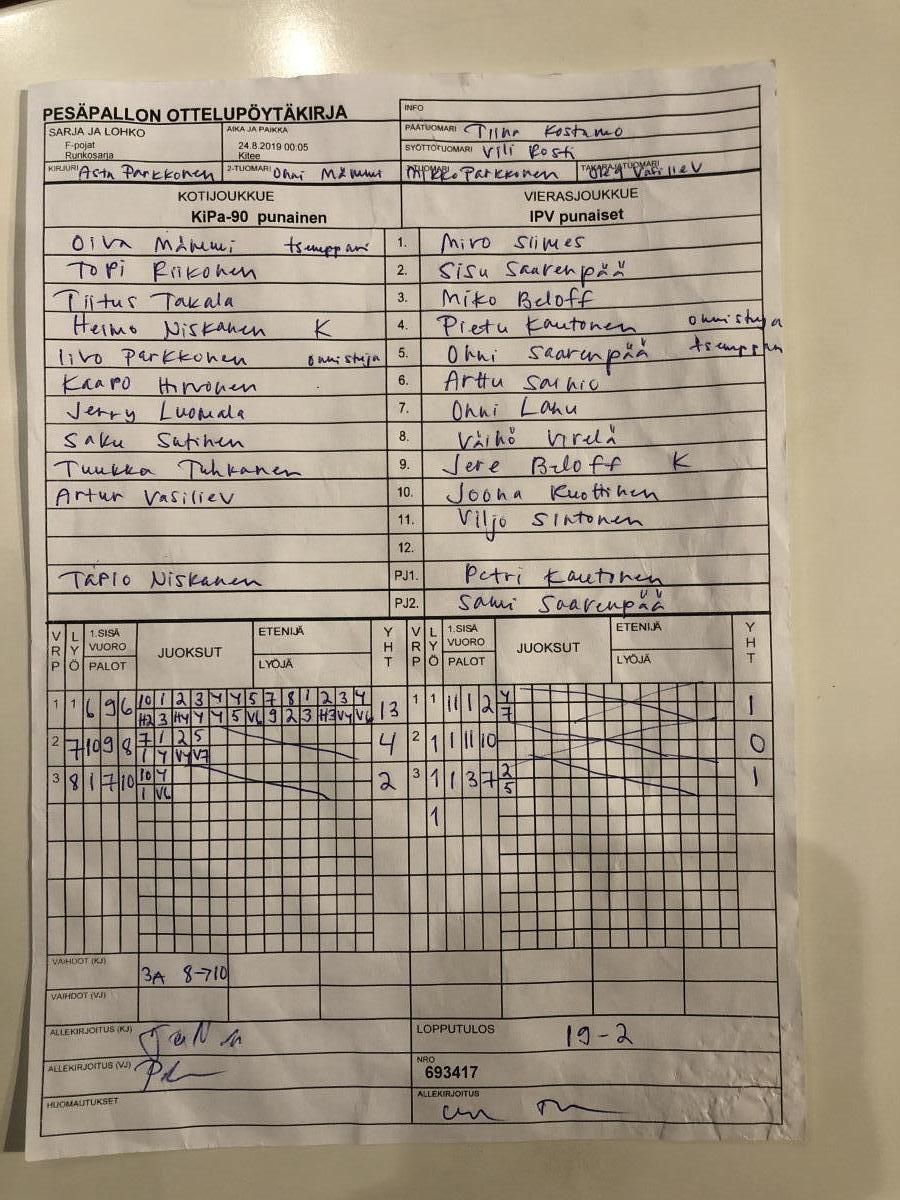 PESÄPALLON OTTELUPÖYTÄKIRJA
INFO
SARJA JA LOHKO
F-pojat
Runkosarja
AIKA JA PAIKKA
24.8.2019 00:05
Kitee
PÄÄTUOMARI Tiina Kostamo
SYÖTTÖTUOMARI Vili Kosti
KIRJURI Asta Parkkonen
2-TUOMARI Onni Mämmi
3-TUOMARI Mikko Parkkonen
TAKARAJATUOMARI Oleg Vasiliev
KOTIJOUKKUE
KiPa-90 punainen
VIERASJOUKKUE
IPV punaiset
Oiva Mämmi tsemppari 1. Miro Siimes
Topi Riikonen 2. Sisu Saarenpää
Tiitus Takala 3. Miko Beloff
Heimo Niskanen K 4. Pietu Kautonen onnistuja
Iivo Parkkonen onnistuja 5. Onni Saarenpää tsemppari
Kaapo Hirvonen 6. Arttu Sainio
Jerry Luomala 7. Onni Lanu
Saku Sutinen 8. Väinö Virelä
Tuukka Tuhkanen 9. Jere Beloff K
Artur Vasiliev 10. Joona Kuottinen
11. Viljo Sintonen
12.
Tapio Niskanen PJ1. Petri Kautonen
PJ2. Sami Saarenpää
VRP LYÖ 1.SISÄ VUORO PALOT JUOKSUT ETENIJÄ LYÖJÄ YHT VRP LYÖ 1.SISÄ VUORO PALOT JUOKSUT ETENIJÄ LYÖJÄ YHT
1 1 6 9 6 10 1 2 3 4 4 5 7 8 1 2 3 4 13 1 1 11 1 2 4 1
H2 3 H4 4 4 5 V6 9 2 3 H3 V4 V6 7
2 7 10 9 8 7 1 2 5 4 2 1 1 11 10 0
1 4 V4 V7
3 8 1 7 10 10 4 2 3 1 1 3 7 2 1
1 V6 5
1
VAIHDOT (KJ) 3A 8-710
VAIHDOT (VJ)
ALLEKIRJOITUS (KJ)
LOPPUTULOS 19-2
ALLEKIRJOITUS (VJ)
NRO
693417
HUOMAUTUKSET
ALLEKIRJOITUS